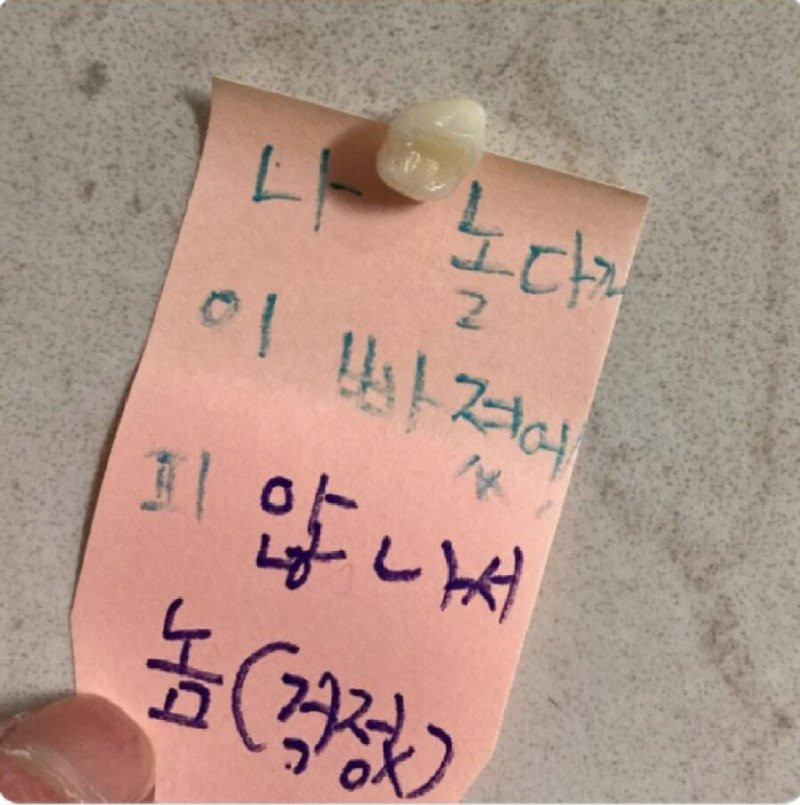 나 놀다가
이 빠졌어!
피 않 나서
놈(걱정x)